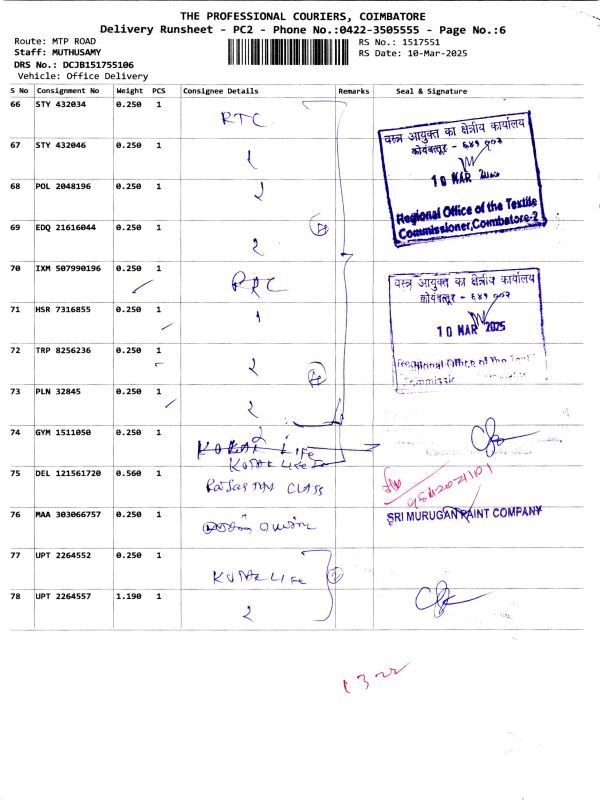 THE PROFESSIONAL COURIERS, COIMBATORE
Delivery Runsheet - PC2 - Phone No.:0422-3505555 - Page No.:6
Route: MTP ROAD
RS No.: 1517551
Staff: MUTHUSAMY
RS Date: 10-Mar-2025
DRS No.: DCJB151755106
Vehicle: Office Delivery
S No Consignment No Weight PCS Consignee Details Remarks Seal & Signature
66 STY 432034 0.250 1 RTC
67 STY 432046 0.250 1
68 POL 2048196 0.250 1
69 EDQ 21616044 0.250 1
वस्त्र आयुक्त का क्षेत्रीय कार्यालय
कोयंबत्तूर - ६४१ ००२
10 MAR
Regional Office of the Textile
Commissioner, Coimbatore-2
70 IXM 507990196 0.250 1
71 HSR 7316855 0.250 1
72 TRP 8256236 0.250 1
73 PLN 32845 0.250 1
वस्त्र आयुक्त का क्षेत्रीय कार्यालय
कोयंबत्तूर - ६४१ ००२
10 MAR 2025
Regional Office of the Text
Commissio
74 GYM 1511050 0.250 1 KOTAK LIFE
75 DEL 121561720 0.560 1 CLASS
76 MAA 303066757 0.250 1
SRI MURUGAN PAINT COMPANY
77 UPT 2264552 0.250 1 KOTAK LIFE
78 UPT 2264557 1.190 1